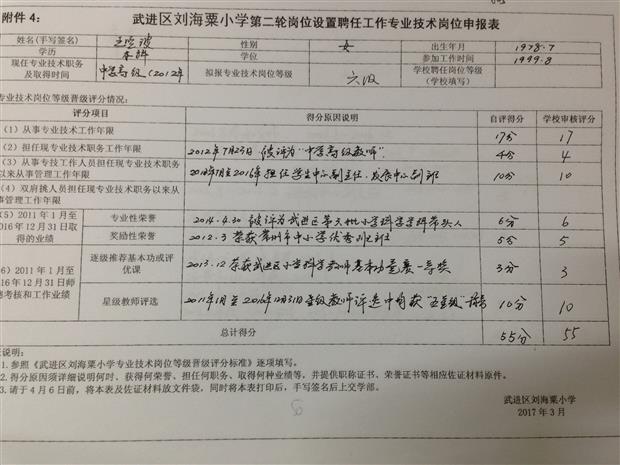 附件4：
武进区刘海粟小学第二轮岗位设置聘任工作专业技术岗位申报表
姓名(手写签名) 性别 女 出生年月 1978.7
学历 本科 学位 参加工作时间 1999.8
现任专业技术职务及取得时间 中学高级(2012年 拟报专业技术岗位等级 六级 学校聘任岗位等级(学校填写)
专业技术岗位等级晋级评分情况：
评分项目 得分原因说明 自评得分 学校审核评分
(1) 从事专业技术工作年限 17分 17
(2) 担任现专业技术职务工作年限 2012年7月23日 被评为"中学高级教师". 4分 4
(3) 从事专技工作人员担任现专业技术职务以来从事管理工作年限 年1月至2016年担任学生中心副主任、发展中心副部 10分 10
(4) 双肩挑人员担任现专业技术职务以来从事管理工作年限
(5) 2011年1月至2016年12月31日取得的业绩 专业性荣誉 2014.4.30 被评为武进区第六批小学科学学科带头人 6分 6
奖励性荣誉 2012.3 荣获常州市中小学优秀班主任 5分 5
6) 2011年1月至2016年12月31日师德考核和工作业绩 逐级推荐基本功或评优课 2013.12 荣获武进区小学科学教师基本功竞赛一等奖 3分 3
星级教师评选 2011年1月至2016年12月31日星级教师评选中均获"五星级" 10分 10
总计得分 55分 55
说明：
1.参照《武进区刘海粟小学专业技术岗位等级晋级评分标准》逐项填写。
2.得分原因须详细说明何时、获得何荣誉、担任何职务、取得何种业绩等，并提供职称证书、荣誉证书等相应佐证材料原件。
3.请于4月6日前，将本表及佐证材料放文件袋，同时将本表打印后，手写签名后上交学部。
武进区刘海粟小学
2017年3月